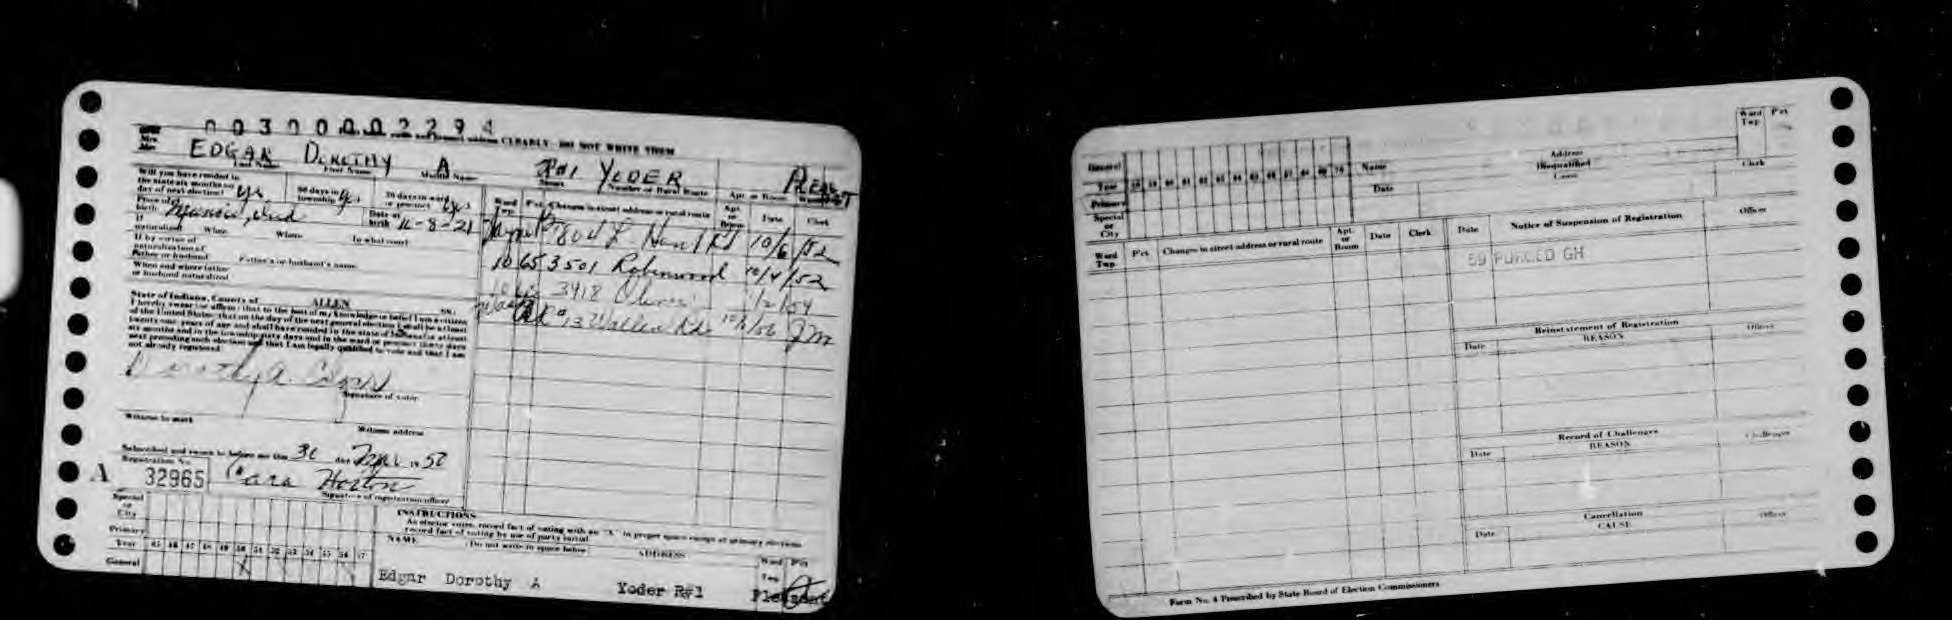 00300002294
CLEARLY DO NOT WRITE THEM
Mrs.
EDGAR DOROTHY A R#1 YODER
Last Name First Name Middle Name Street Number or Rural Route Apt. or Room
Will you have resided in
the state six months on
day of next election? yes
60 days in
township yes
30 days in ward
or precinct yes
Place of
birth Muncie, Ind
Date of
birth 11-8-21
If
naturalized When Where In what court
If by virtue of
naturalization of
Father or husband Father's or husband's name
When and where father
or husband naturalized
State of Indiana, County of ALLEN SS:
I hereby swear (or affirm) that to the best of my knowledge or belief I am a citizen
of the United States; that on the day of the next general election I shall be at least
twenty-one years of age and shall have resided in the state of Indiana for at least
six months and in the township sixty days and in the ward or precinct thirty days
next preceding such election and that I am legally qualified to vote and that I am
not already registered.
Dorothy A. Edgar
Signature of voter
Witness to mark Witness address
Subscribed and sworn to before me this day
Registration No.
A 32965
Horton
Signature of registration officer
Ward
Twp. Pct. Changes in street address or rural route Apt.
or
Room Date Clerk
10/6/52
10 65 3501 Robinwood 10/4/52
3918
Wallen Rd.
Special
or
City
Primary
Year 45 46 47 48 49 50 51 52 53 54 55 56 57
General
INSTRUCTIONS
As elector votes, record fact of voting with an "X" in proper space except at primary elections
record fact of voting by use of party initial
NAME (Do not write in space below) ADDRESS Ward Pct
Twp.
Edgar Dorothy A Yoder R#1 Pleasant
General
Year 58 59 60 61 62 63 64 65 66 67 68 69 70
Primary
Special
or
City
Name Address
Ward
Twp. Pct
Date Disqualified
Cause Clerk
Ward
Twp. Pct. Changes in street address or rural route Apt.
or
Room Date Clerk
Date Notice of Suspension of Registration Officer
59 PURGED GH
Reinstatement of Registration
Date REASON Officer
Record of Challenges
Date REASON Challenger
Cancellation
Date CAUSE Officer
Form No. 4 Prescribed by State Board of Election Commissioners